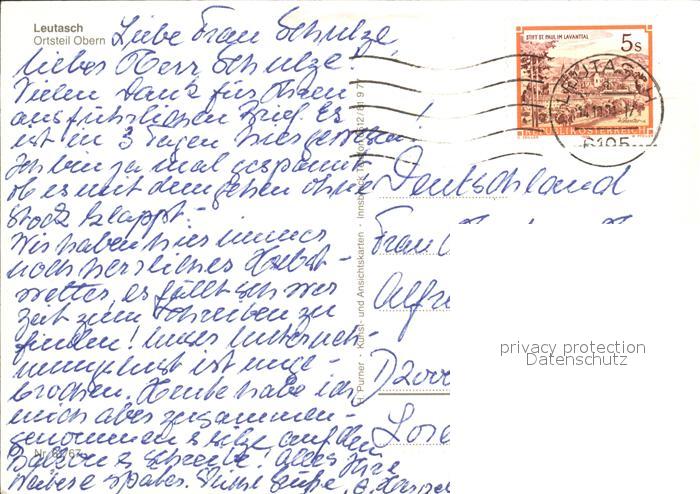 Leutasch
Ortsteil Obern
Liebe Frau Schulze,
lieber Herr Schulze!
Vielen Dank für Ihren
ausführlichen Brief. Es
ist in 3 Tagen hier gewesen!
Ich bin ja mal gespannt
ob es mit dem gehen ohne
Stock klappt. -
Wir haben hier immer
noch herrliches Herbst-
wetter, es fällt schwer
Zeit zum Schreiben zu
finden! Unser Unterneh-
mungslust ist unge-
brochen. Heute habe ich
mich aber zusammen-
genommen u. sitze auf dem
Balkon u. schreibe! Alles
später.
STIFT ST. PAUL IM LAVANTTAL
5s
REPUBLIK ÖSTERREICH
LEUTASCH
6105
H. Purner · Kunst- und Ansichtskarten · Innsbruck
Deutschland
Frau
Alfre
D2000
privacy protection
Datenschutz